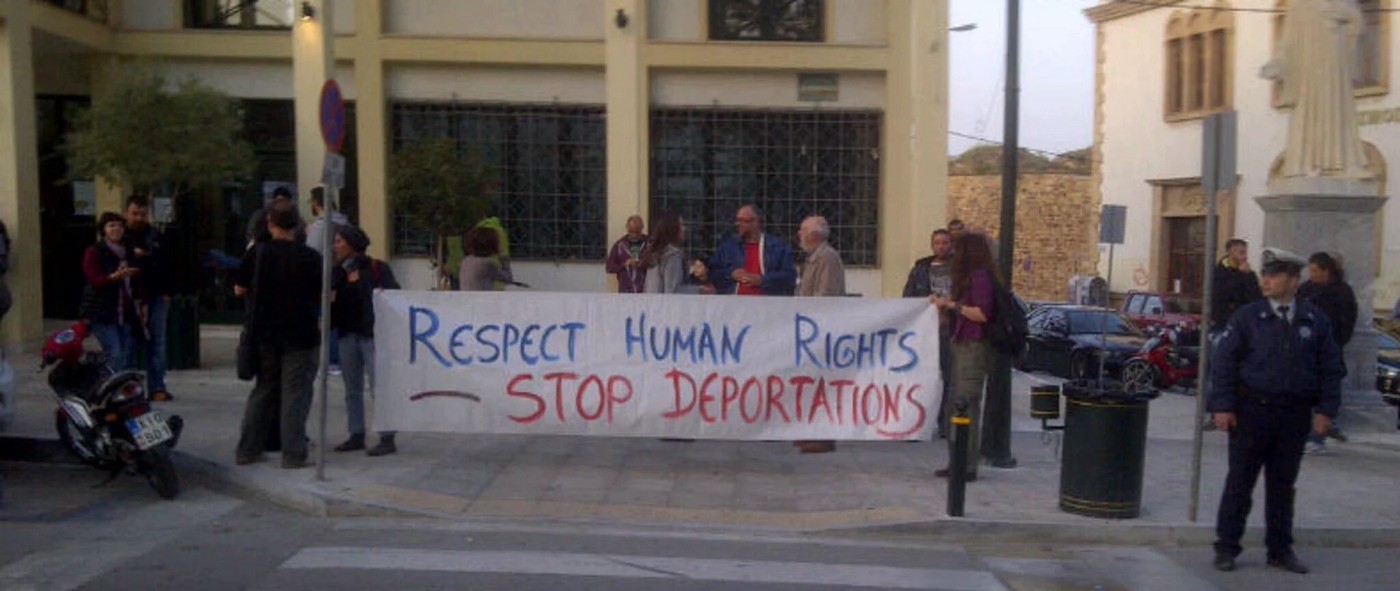 RESPECT HUMAN RIGHTS
— STOP DEPORTATIONS